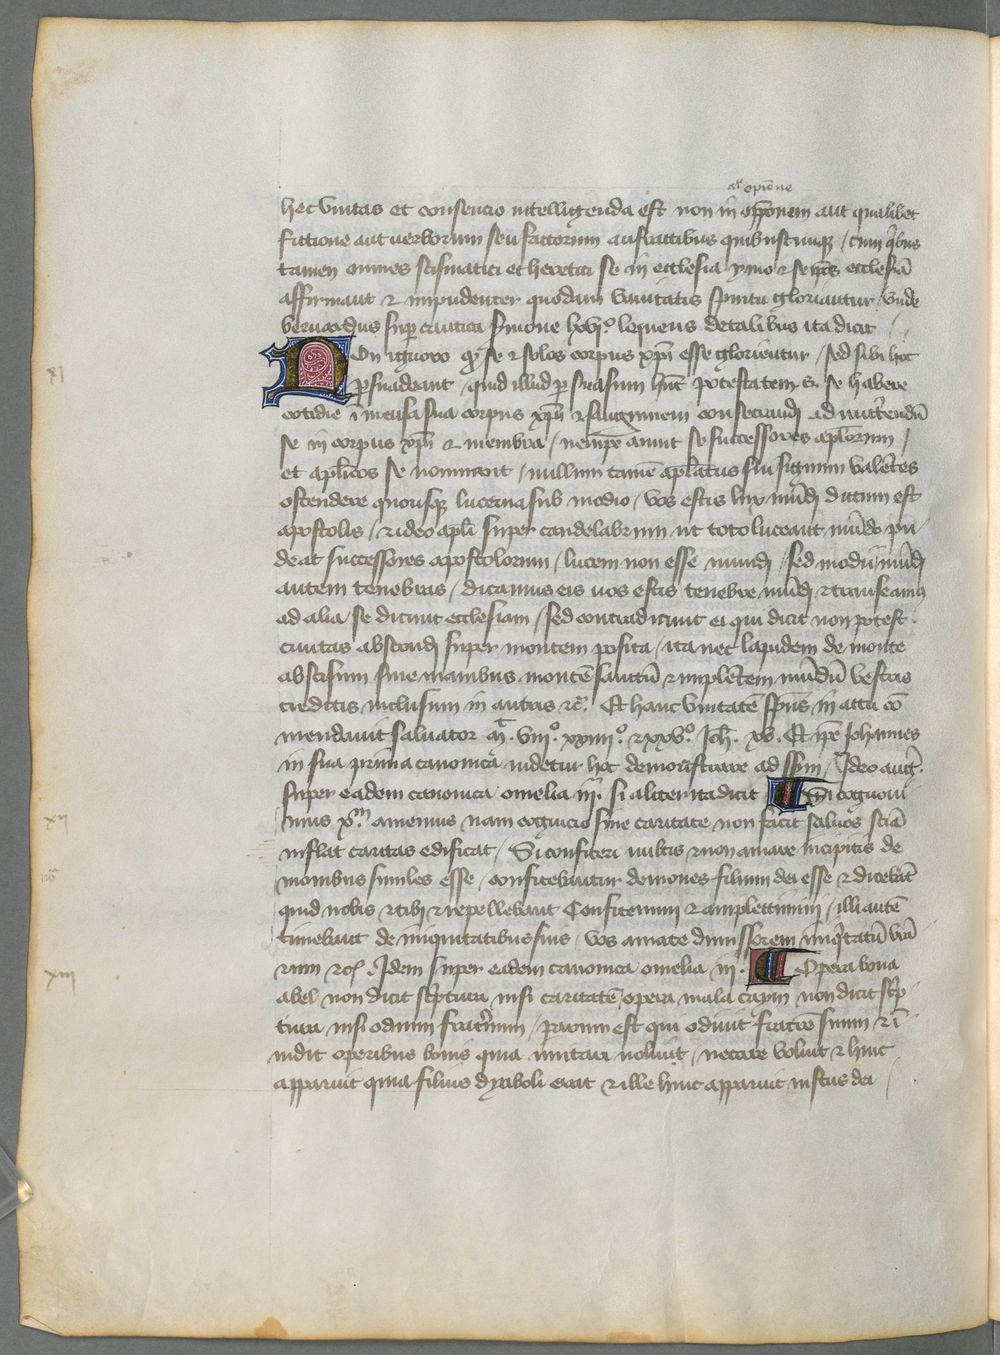 al' opinione
hec vnitas et consencio intelligenda est non in opponem aut qualibet
fictione aut verborum seu factorum anfractibus quibuscumque / cum quibus
tamen omnes scismatici et heretici se in ecclesia ymo & se ipsos ecclesiam
affirmant & impudenter quodam vanitatis spiritu gloriantur / vnde
bernardus super cantica sermone lxvi° loquens de talibus ita dicit /
Non ignoro quod se & solos corpus xpi esse glorientur / sed sibi hoc
persuadeant / quid illud persuasum habent potestatem s. se habere
cotidie in mensa sua corpus xpi & sanguinem consecrandi ad nutriendum
se in corpus xpi & membra / nempe aiunt se successores aplorum /
et aplicos se nominant / nullum tamen aplatus sui signum valentes
ostendere quousque lucerna sub modio / vos estis lux mundi dictum est
apostolis / & ideo apli super candelabrum ut toto luceant mundo pu
deat successores apostolorum / lucem non esse mundi / sed modii / mundi
autem tenebras / dicamus eis uos estis tenebre mundi & transeamus
ad alia / se dicunt ecclesiam / sed contradicunt ei qui dicit non potest
ciuitas abscondi super montem posita / ita nec lapidem de monte
abscisum sine manibus montem factum & implentem mundum vestris
creditis inclusum in antris &c. Et hanc vnitatem spiritus in actu com
mendauit saluator Mt. viii° xxiiii° & xxv° Joh. xv. Et ipse Johannes
in sua prima canonica uidetur hoc demonstrare ad ... / Ideo aug.
super eadem canonica omelia ii. si aliter ita dicit Si cognoui
mus xpm amemus nam cognicio sine caritate non facit saluos sciencia
inflat caritas edificat / Si confiteri uultis & non amare incipitis de
monibus similes esse / confitebantur demones filium dei esse & dicebant
quid nobis & tibi & repellebant Confitemini & amplectimini / illi autem
timebant de iniquitatibus suis / vos amate dimissorem iniquitatum vra
rum &c. Idem super eadem canonica omelia iii. Opera bona
abel non dicit scriptura nisi caritatem / opera mala caym non dicit scrip
tura nisi odium fraternum / parum est qui odiuit fratrem suum & in
uidit operibus bonis quia imitari noluit / necare voluit & hinc
apparuit quia filius dyaboli erat & ille hinc apparuit iustus dei /
xi
xii
no
xiii